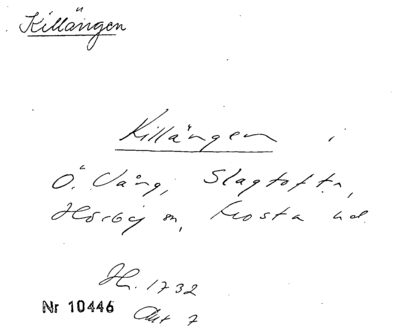 Killängen
Killängen i
Ö. Vång, Slagtofta,
Hörby sn, Frosta hd.
Hr. 1732
Nr 10446
Akt 7